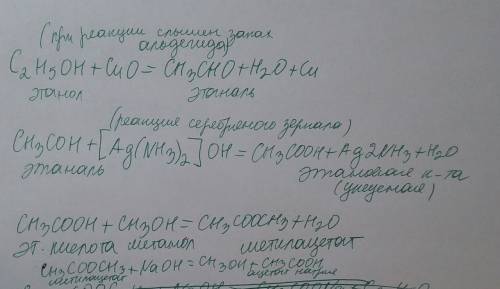 (при реакции слышен запах
альдегида)
C2H5OH + CuO = CH3CHO + H2O + Cu
этанол этаналь
(реакция серебряного зеркала)
CH3COH + [Ag(NH3)2]OH = CH3COOH + Ag2NH3 + H2O
этаналь этановая к-та
(уксусная)
CH3COOH + CH3OH = CH3COOCH3 + H2O
эт. кислота метанол метилацетат
CH3COOCH3 + NaOH = CH3OH + CH3COOH
метилацетат ацетат натрия